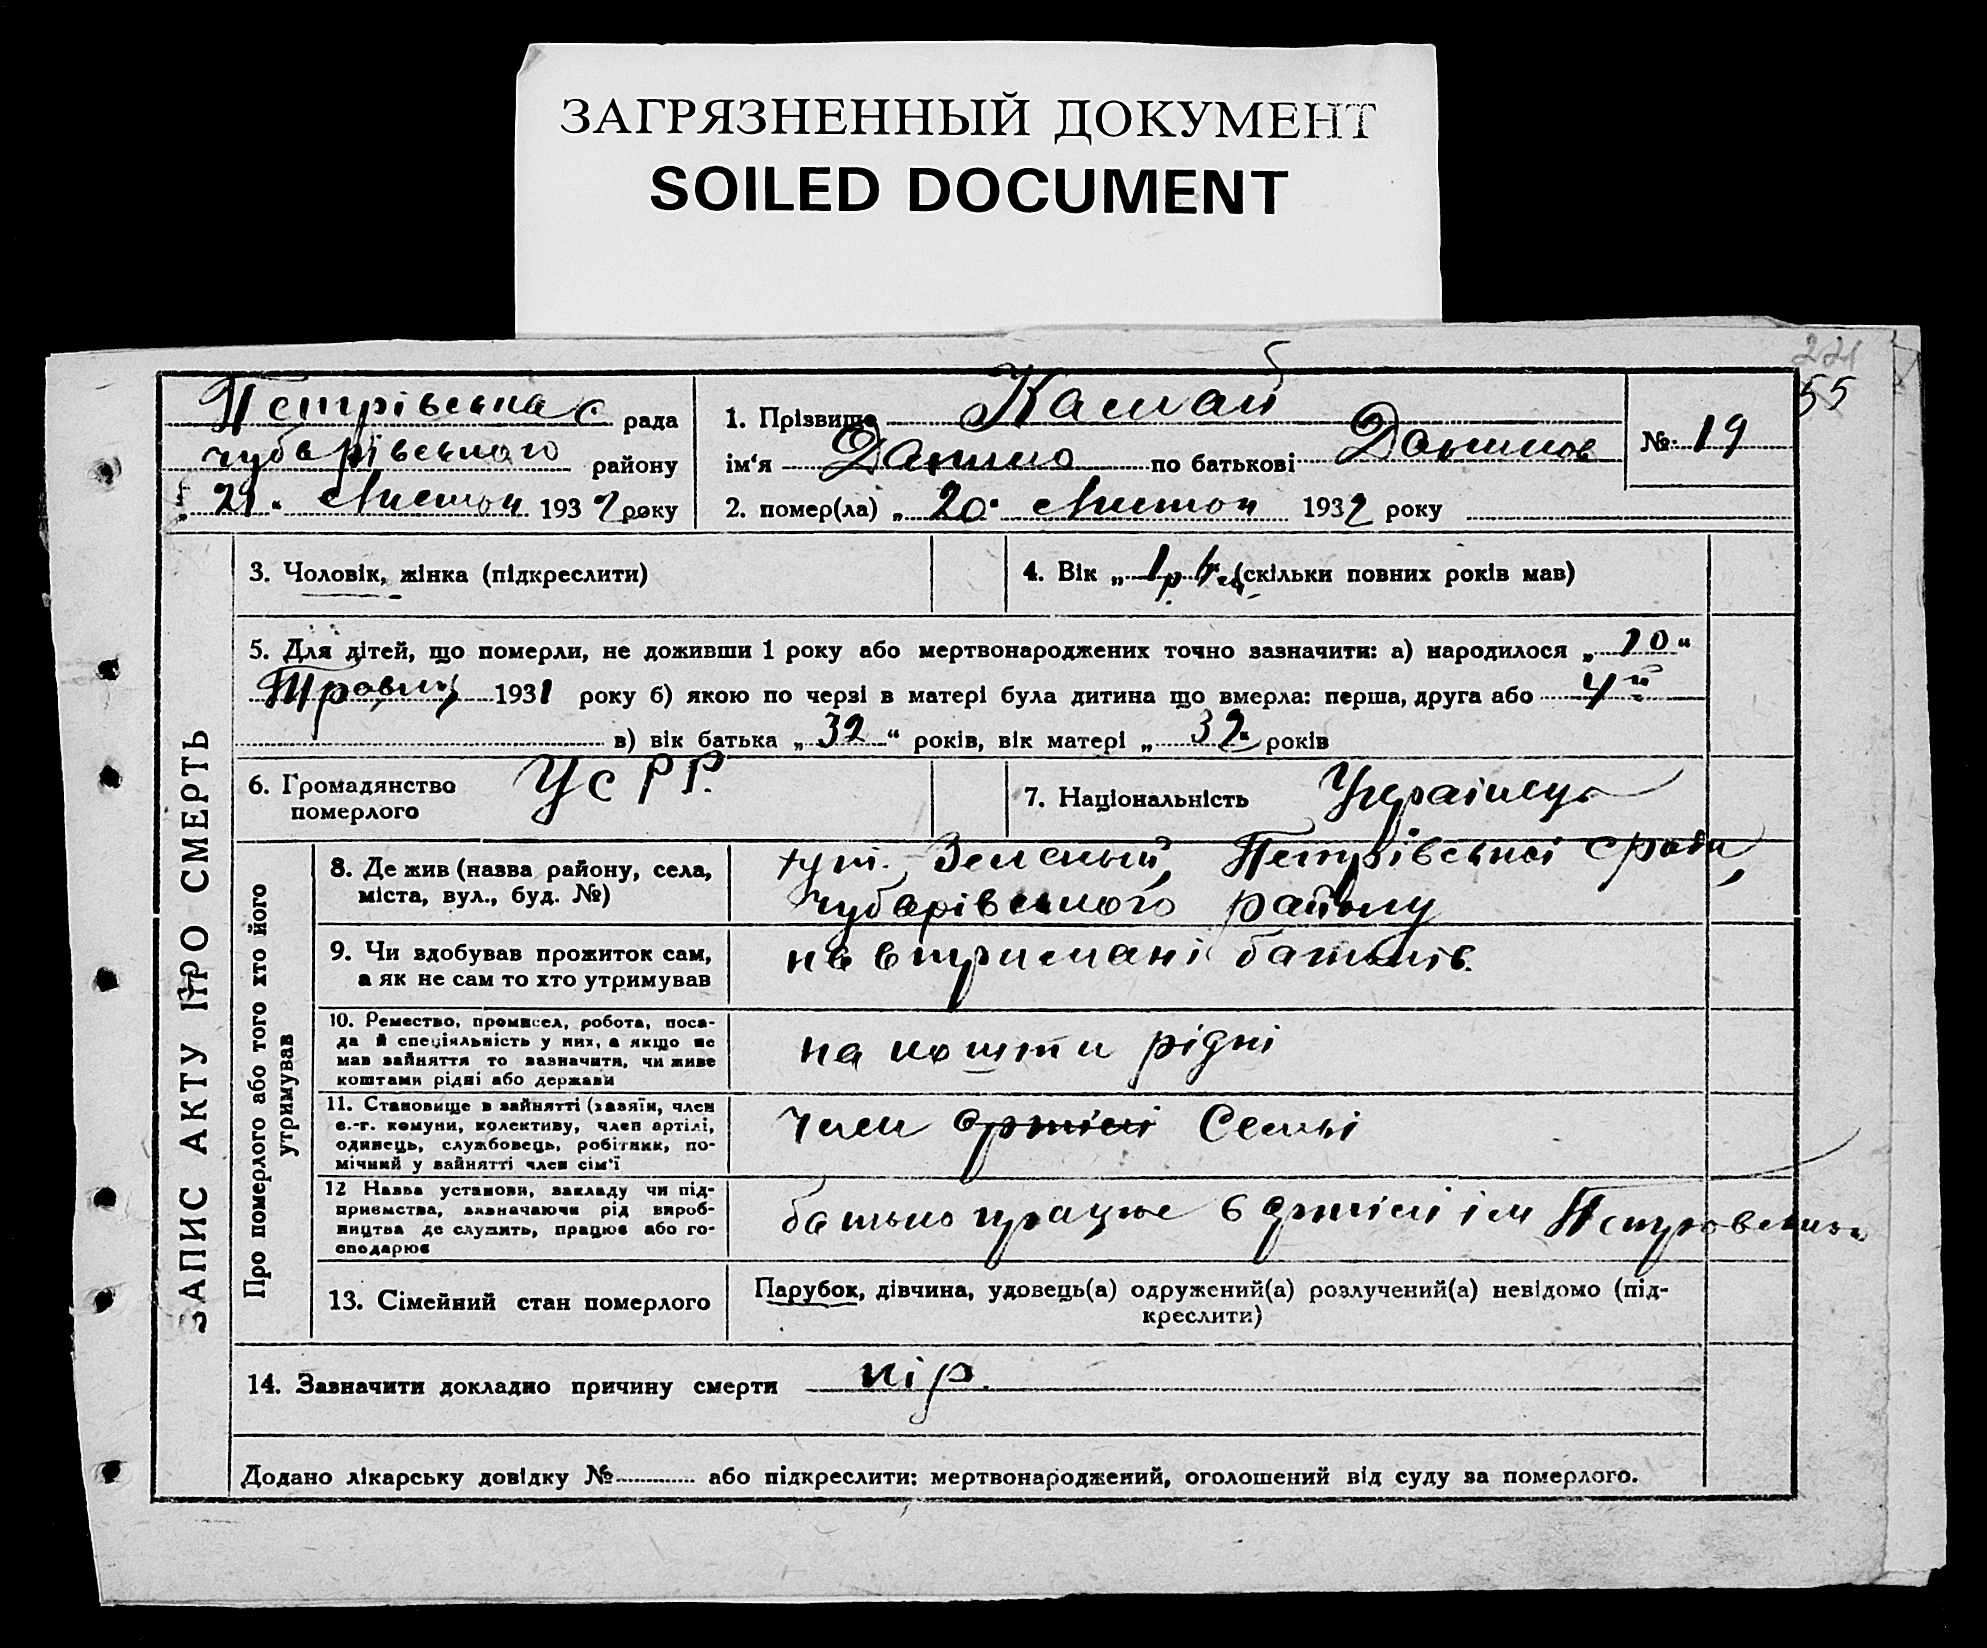 ЗАГРЯЗНЕННЫЙ ДОКУМЕНТ
SOILED DOCUMENT
221
55
Петрівська с рада
чубарівського району
„ 21 " Листоп 1932 року
1. Прізвище Камай
ім'я Данило по батькові Данилов
№ 19
2. помер(ла) „ 20 " Листоп 1932 року
ЗАПИС АКТУ ПРО СМЕРТЬ
3. Чоловік, жінка (підкреслити)
4. Вік „ 1 р 6 м. (скільки повних років мав)
5. Для дітей, що померли, не доживши 1 року або мертвонароджених точно зазначити: а) народилося „ 10 "
Травня 1931 року б) якою по черзі в матері була дитина що вмерла: перша, друга або 4й
в) вік батька „ 32 " років, вік матері „ 32 " років
6. Громадянство
померлого
УСРР.
7. Національність Українець
Про померлого або того хто його
утримував
8. Де жив (назва району, села,
міста, вул., буд. №)
хут. Зелений, Петрівської с ради,
чубарівського району
9. Чи здобував прожиток сам,
а як не сам то хто утримував
на втримані батьків.
10. Ремество, промисел, робота, поса-
да й спеціяльність у них, а якщо не
мав зайняття то зазначити, чи живе
коштами рідні або держави
на кошти рідні
11. Становище в зайнятті (хазяїн, член
с.-г. комуни, колективу, член артілі,
одинець, службовець, робітник, по-
мічний у зайнятті член сім'ї
член артілі Семьі
12 Назва установи, закладу чи під-
приємства, зазначаючи рід вироб-
ництва де служить, працює або го-
сподарює
батько працює в артілі ім Петровского
13. Сімейний стан померлого
Парубок, дівчина, удовець(а) одружений(а) розлучений(а) невідомо (під-
креслити)
14. Зазначити докладно причину смерти кір.
Додано лікарську довідку № або підкреслити: мертвонароджений, оголошений від суду за померлого.